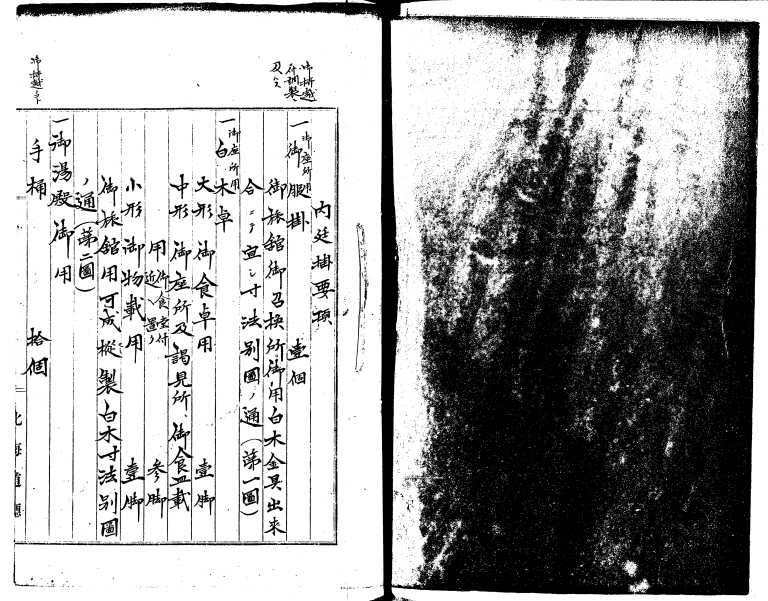 内廷掛要項
一御腰掛 壹個
御座所用
御旅館御召換所御用白木金具出来
合ニテ宜シ寸法別圖ノ通(第一圖)
一白木卓
御座所用
大形御食卓用 壹脚
中形御座所及謁見所御食皿載
用 參脚
御食堂付
近ヘ置ク
小形御物載用 壹脚
御旅館用可成樅製白木寸法別圖
ノ通(第二圖)
一御湯殿御用
手桶 拾個
北海道廳